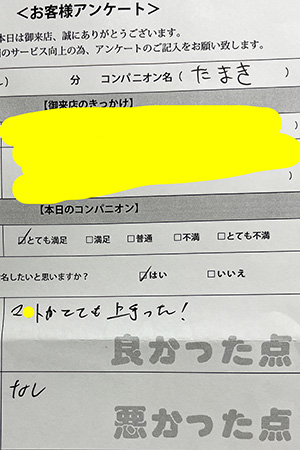 <お客様アンケート>
本日は御来店、誠にありがとうございます。
のサービス向上の為、アンケートのご記入をお願い致します。
分 コンパニオン名 ( たまき
【御来店のきっかけ】
)
)
【本日のコンパニオン】
☑とても満足 □満足 □普通 □不満 □とても不満
名したいと思いますか? ☑はい □いいえ
マ トがとても上手った!
良かった点
なし
悪かった点